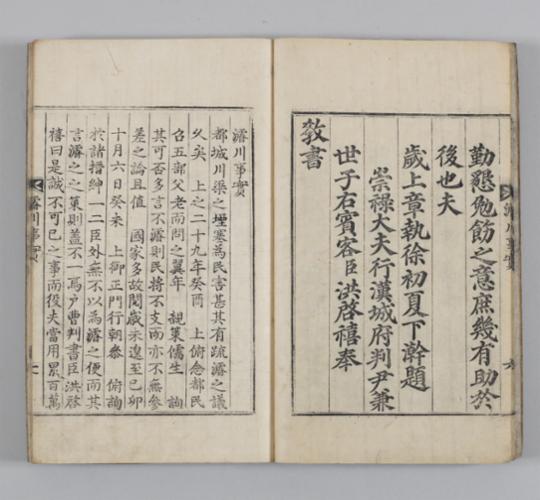 勤懇勉飭之意庶幾有助於
後也夫
歲上章執徐初夏下澣題
崇祿大夫行漢城府判尹兼
世子右賓客臣洪啓禧奉
教書
濬川事實
都城川渠之堙塞為民害甚其有疏濬之議
久矣 上之二十九年癸酉 上俯念都民
召五部父老而問之翼年 親策儒生 詢
其可否多言不濬則民將不支而亦不無參
差之論且值 國家多故閱歲未遑至己卯
十月六日癸未 上御正門行朝參 俯詢
於諸搢紳一二臣外無不以為濬之便而其
言濬之之策則蓋不一焉户曹判書臣洪啓
禧曰是誠不可已之事而役夫當用累百萬
濬川事實